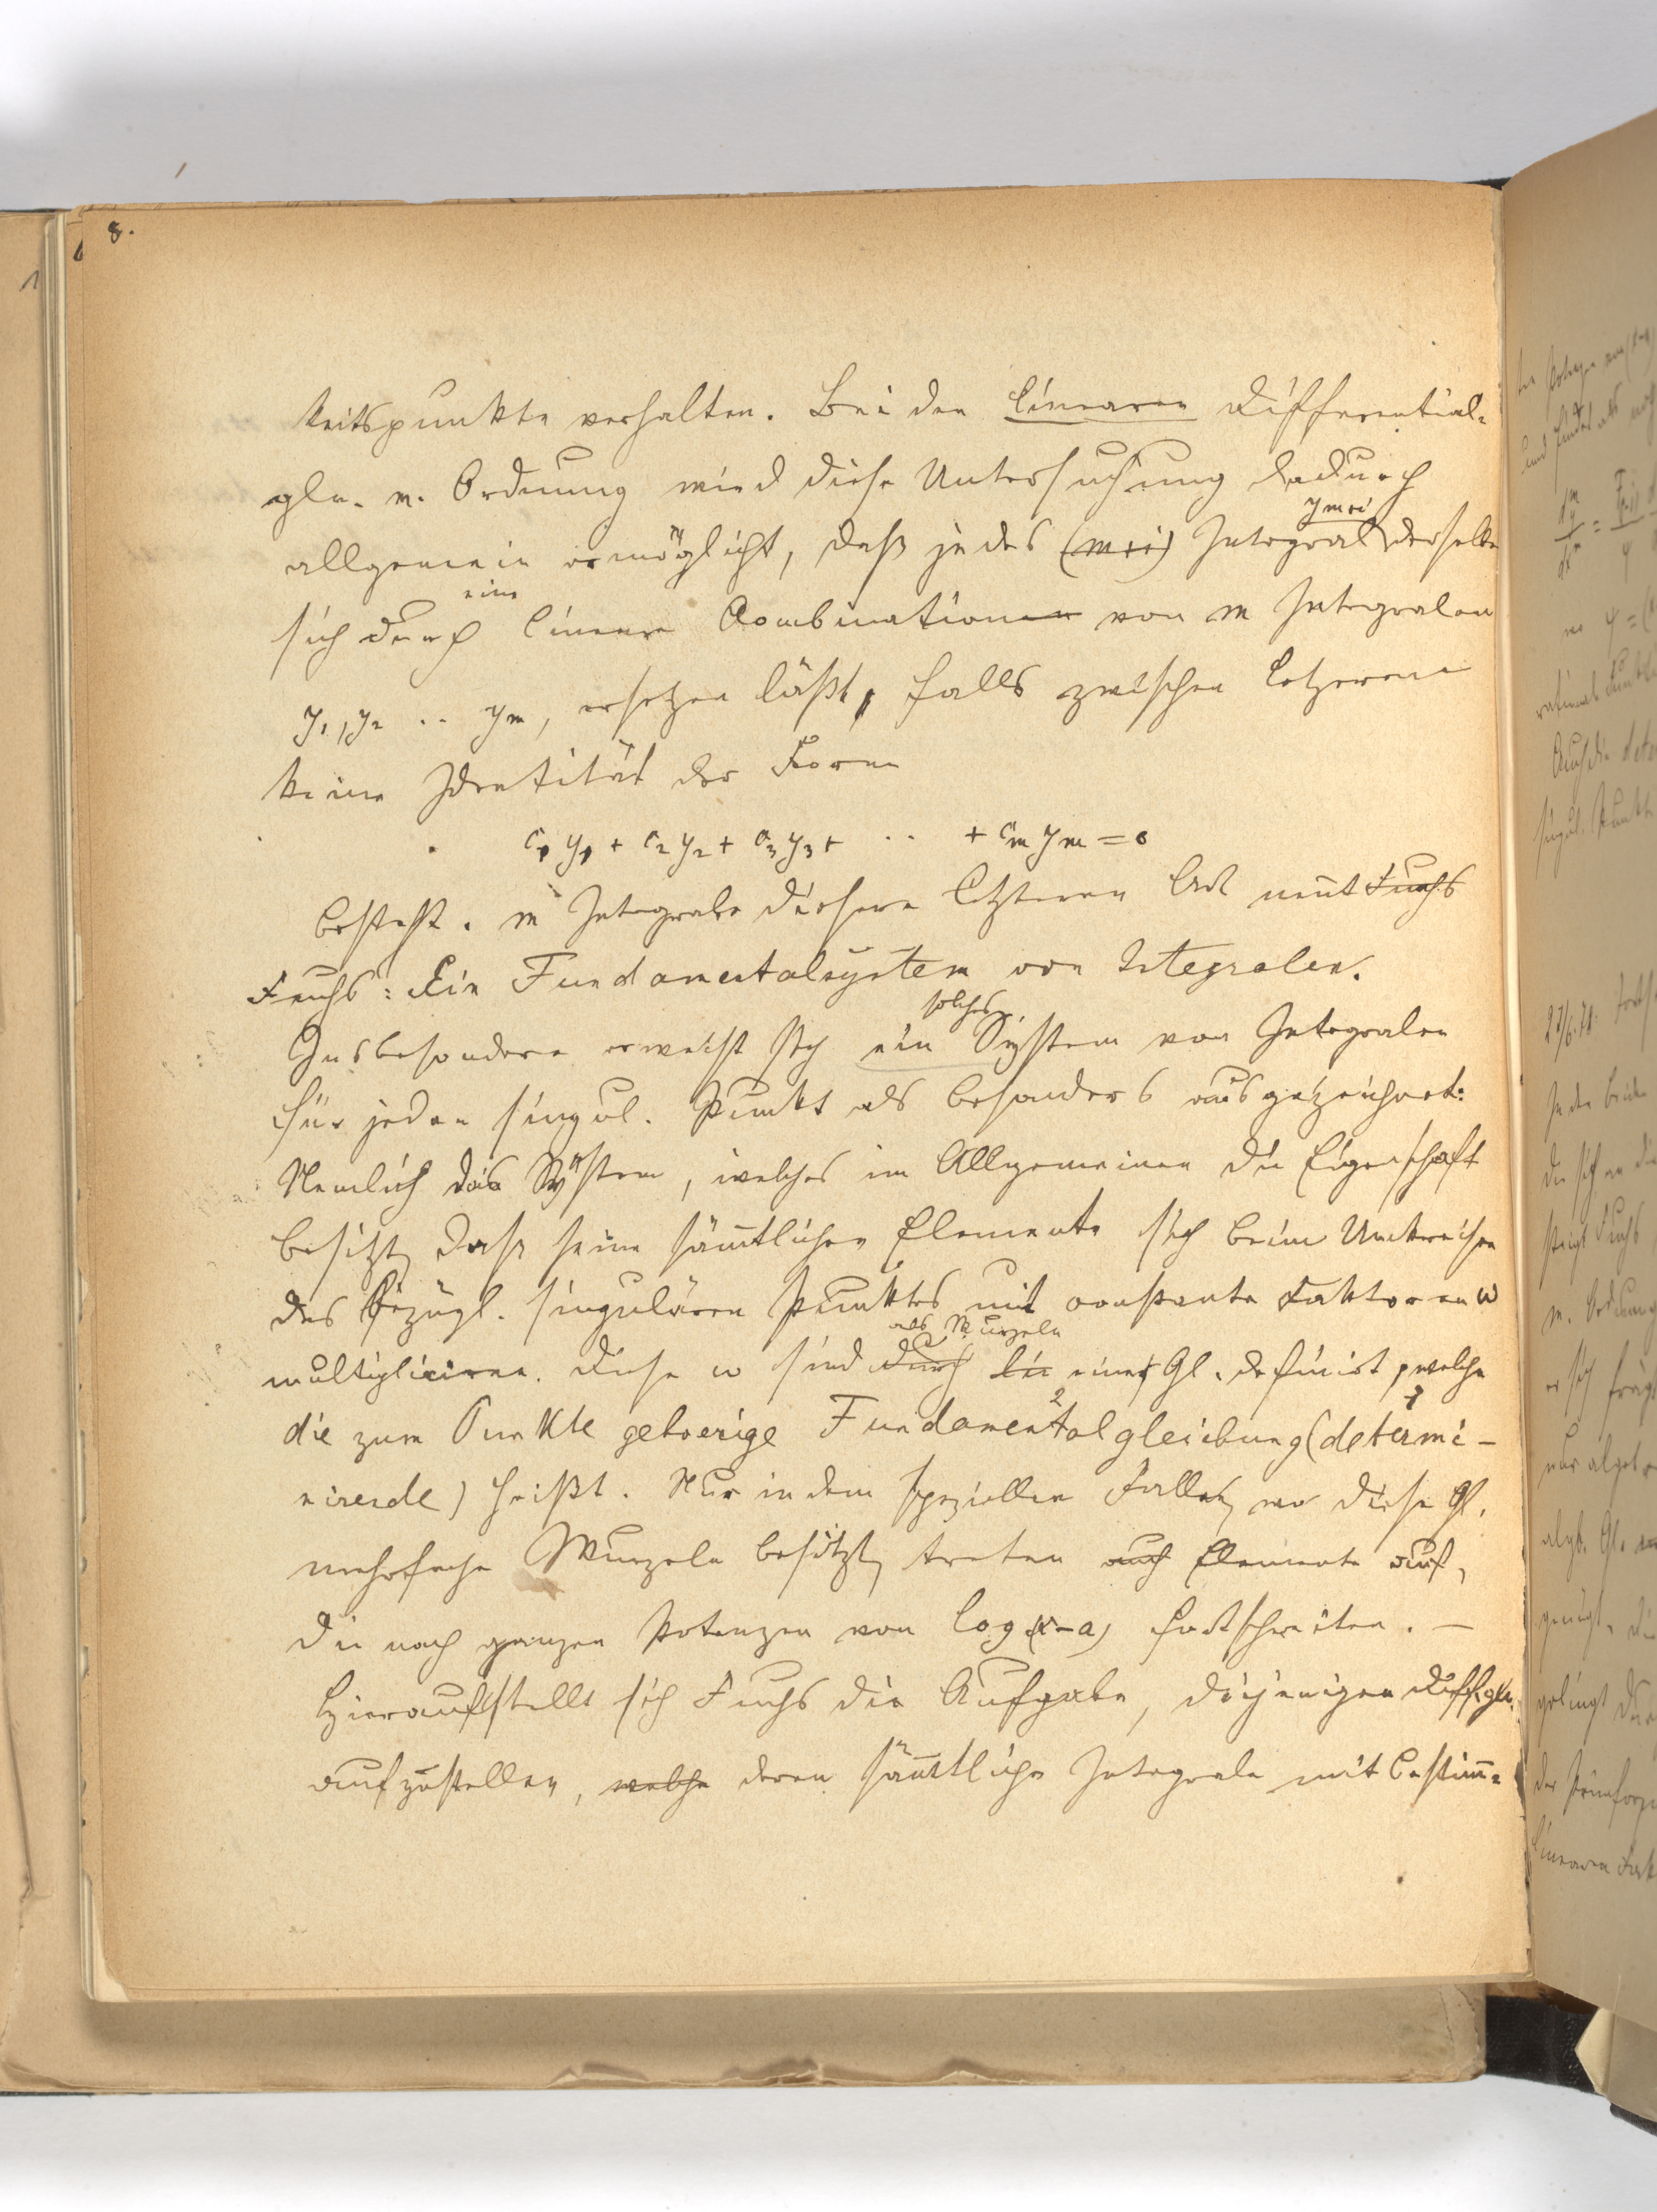 8.
keitspunkte verhalten. Bei den linearen Differential-
gln. m. Ordnung wird diese Untersuchung dadurch
allgemein ermöglicht, daß jedes (m+i) Integral ym+i derselben
sich durch eine lineare Combinationen von m Integralen
y1, y2 .. ym, ersetzen läßt, falls zwischen letzeren
keine Identität der Form
c1 y1 + c2 y2 + c3 y3 + .. + cm ym = 0
besteht. m Integrale dieser letzteren Art nennt Fuchs
Fuchs: Ein Fundamentalsystem von Integralen.
Insbesondere erweist sich ein solches System von Integralen
für jeden singul. Punkt als besonders ausgezeichnet:
Nemlich das System, welches im Allgemeinen die Eigenschaft
besitzt, dass seine sämmtlichen Elemente sich beim Umkreisen
des bezügl. singulären Punktes mit constante Faktoren w
multipliciren. Diese w sind durch als Wurzeln die einer Gl. definirt, welche
die zum Punkte gehoerige Fundamentalgleichung (determi-
nirende) heißt. Nur in dem speziellen Falle, wo diese Gl.
mehrfache Wurzeln besitzt, treten auch Elemente auf,
die nach ganzen Potenzen von log (x-a) fortschreiten. —
Hierauf stellt sich Fuchs die Aufgabe, diejenigen Diffgln.
aufzustellen, welche deren sämmtliche Integrale mit bestimm-